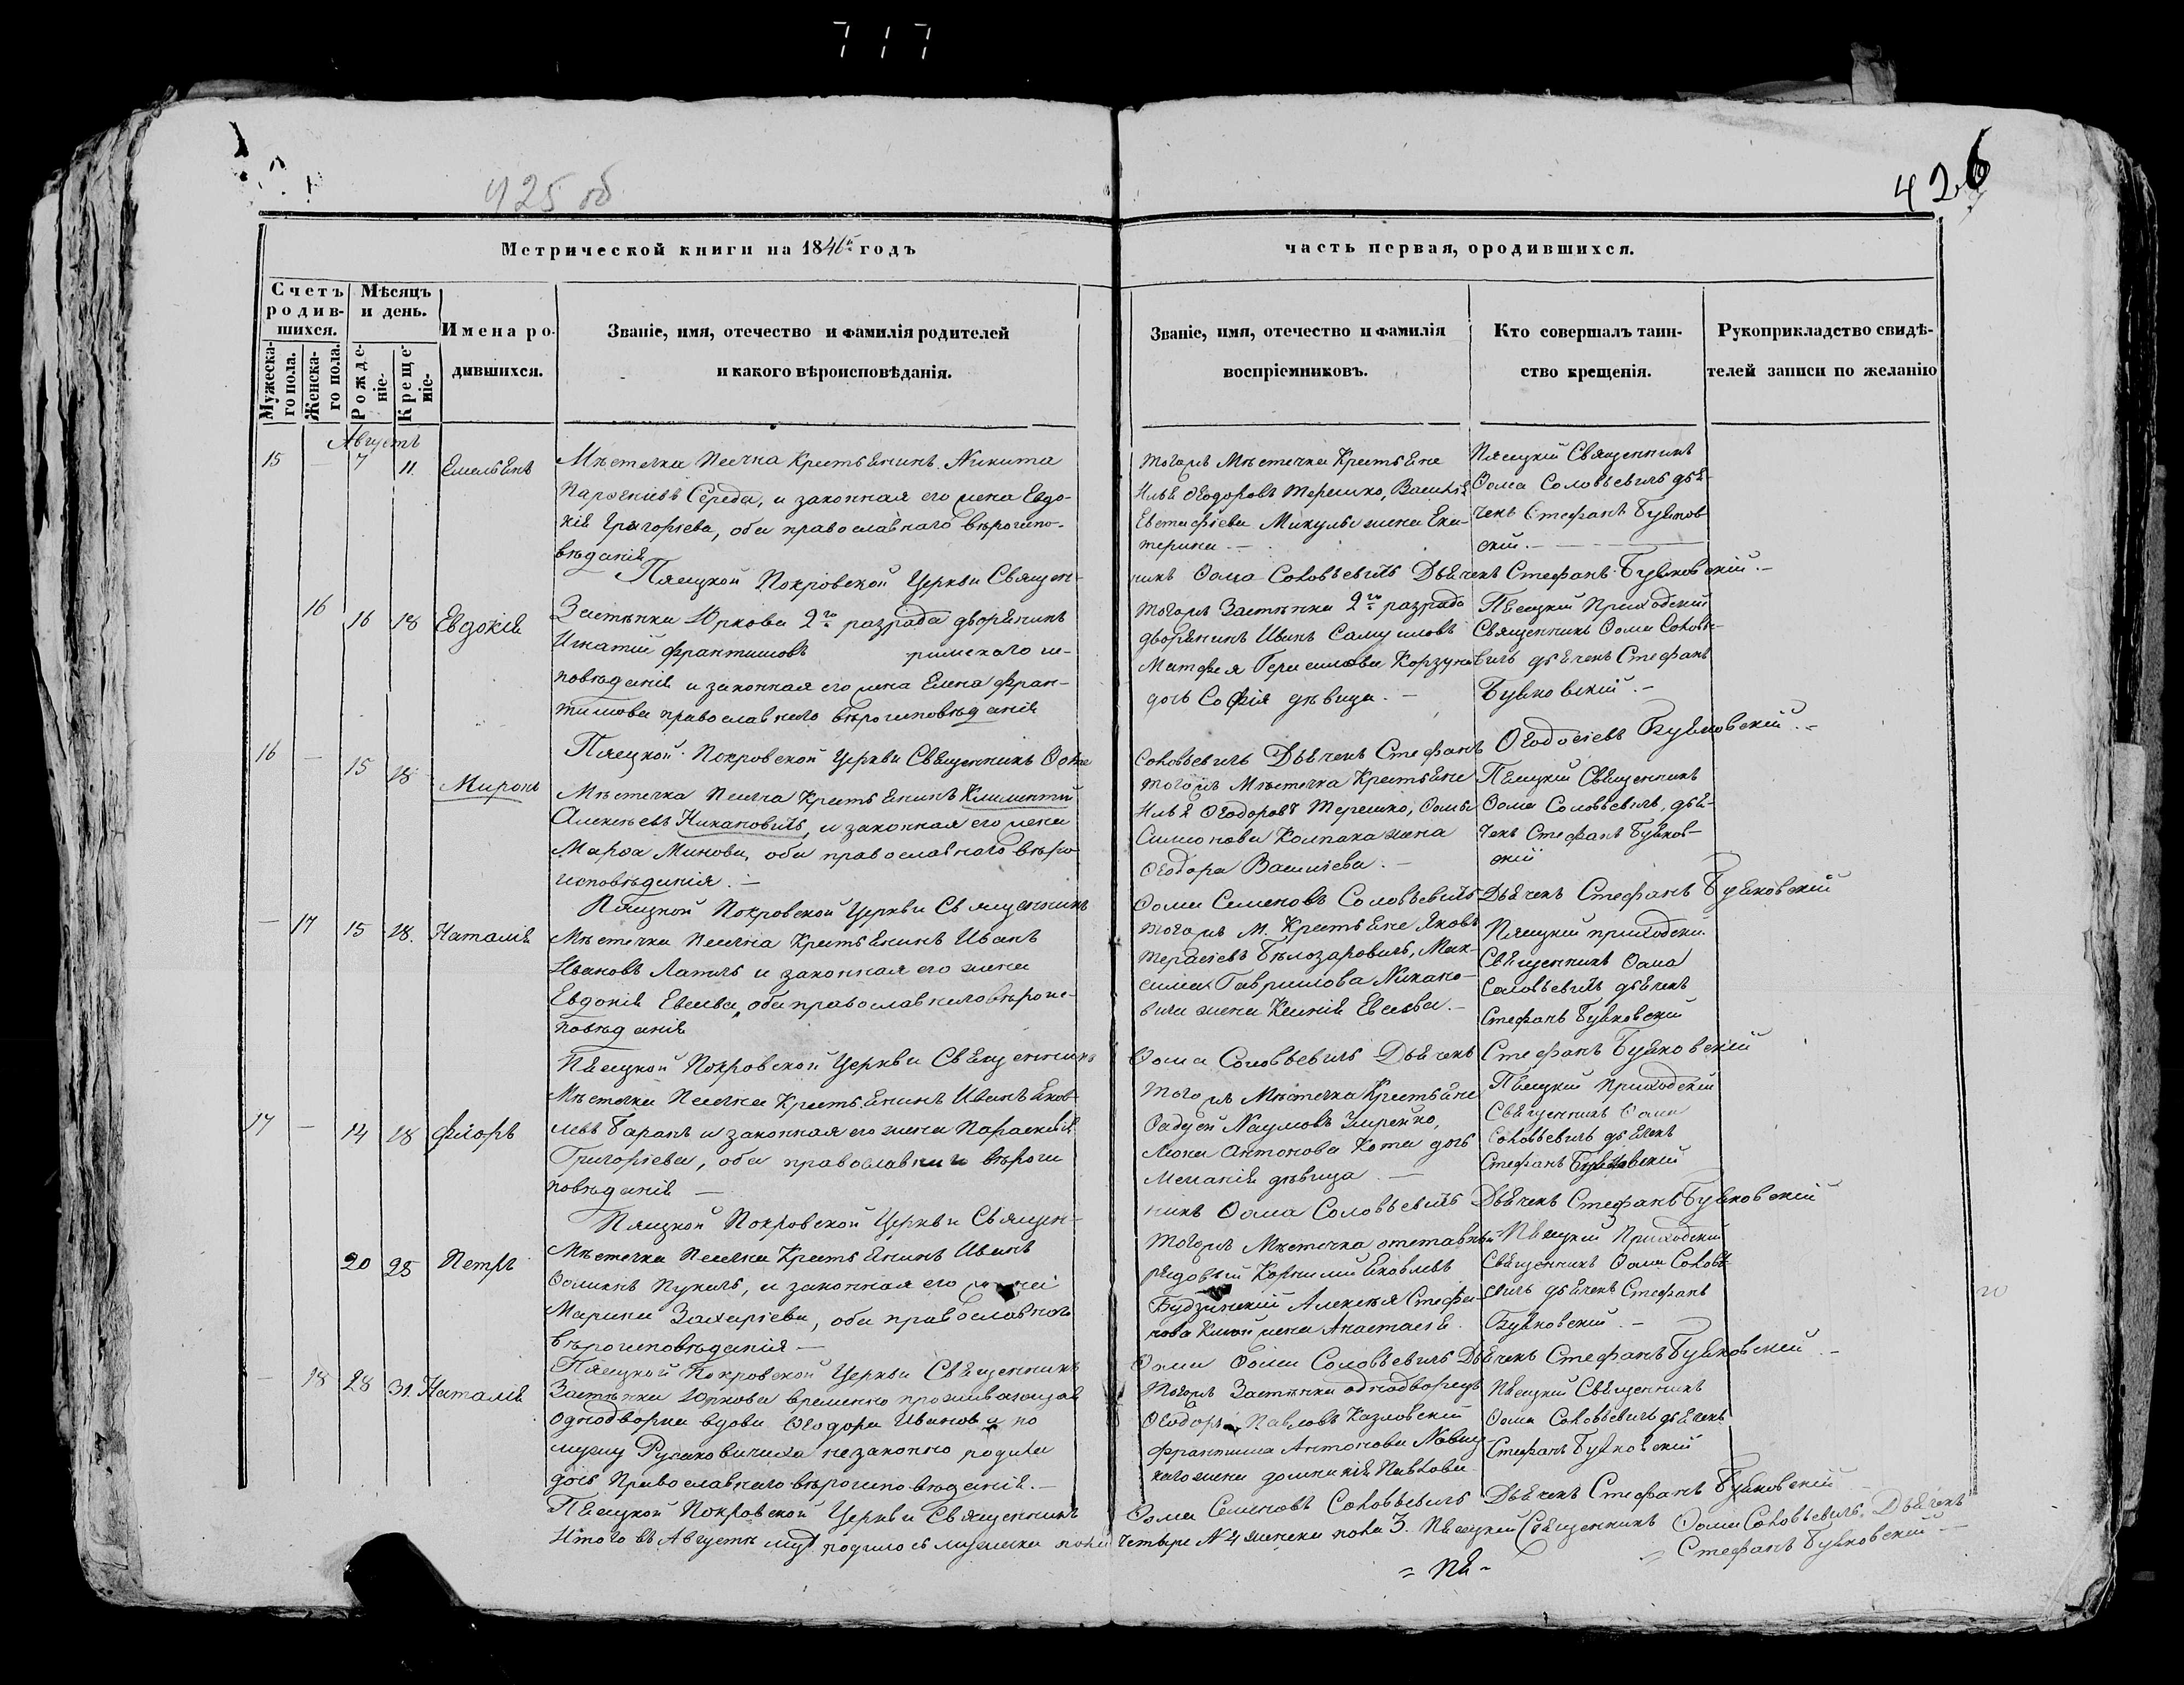 717
425 об
426
Метрической книги на 1846й годъ
часть первая, ородившихся.
Счетъ родив-
шихся.
Мужеска-
го пола.
Женска-
го пола.
Мѣсяцъ
и день.
Рожде-
ніе.
Креще-
ніе.
Имена ро-
дившихся.
Званіе, имя, отечество и фамилія родителей
и какого вѣроисповѣданія.
Званіе, имя, отечество и фамилія
воспріемниковъ.
Кто совершалъ таин-
ство крещенія.
Рукоприкладство свидѣ-
телей записи по желанію
Августъ
15 — 7 11. Емельянъ
Мѣстечка Песчна Крестьянинъ Никита
Середа, и законная его жена Евдо-
кія Григоріева, оба православнаго вѣроиспо-
вѣданія
тогожъ Мѣстечка Крестьяне
Илья Ѳеодоровъ Терешко, Василія
Евстафіева Микулы жена Ека-
терина. —
Пясецкій Священникъ
Ѳома Соловьевичъ дья-
чекъ Стефанъ Буяков
скій. —
Пясецкой Покровской Церкви Священ-
никъ Ѳома Соловьевичъ Дьячекъ Стефанъ Буяковскій. —
16 16 18 Евдокія
Застѣнка Юркова 2го разряда дворянинъ
Игнатій Францишовъ римскаго ис-
повѣданія и законная его жена Елена Фран-
тишова православнаго вѣроисповѣданія
тогожъ Застѣнка 2го разряда
дворянинъ Иванъ Самуиловъ
Матфея Герасимова Корзуна
дочь Софія дѣвица. —
Пясецкій Приходскій
Священникъ Ѳома Соловье-
вичъ дьячекъ Стефанъ
Буяковскій. —
Пясецкой Покровской Церкви Священникъ Ѳома
Соловьевичъ Дьячекъ Стефанъ Ѳеодосіевъ Буяковскій. —
16 — 15 18 Миронъ
Мѣстечка Песчна Крестьянинъ Климентій
Алексѣевъ Никановичъ, и законная его жена
Марѳа Минова, оба православнаго вѣро-
исповѣданія. —
тогожъ Мѣстечка Крестьяне
Илья Ѳеодоровъ Терешко, Ѳомы
Симонова Колпака жена
Ѳеодора Василіева. —
Пясецкій Священникъ
Ѳома Соловьевичъ, дья-
чекъ Стефанъ Буяков-
скій
Пясецкой Покровской Церкви Священникъ
Ѳома Семеновъ Соловьевичъ Дьячекъ Стефанъ Буяковскій
— 17 15 18. Наталія
Мѣстечка Песчна Крестьянинъ Иванъ
Ивановъ Лапичъ и законная его жена
Евдокія Евсеева, оба православнаго вѣроис-
повѣданія
тогожъ М. Крестьяне Яковъ
Тарасіевъ Бѣлозаровичъ, Мак-
сима Гаврилова Никано-
вича жена Ксенія Евсеева. —
Пясецкій приходскій
Священникъ Ѳома
Соловьевичъ дьячекъ
Стефанъ Буяковскій
Пясецкой Покровской Церкви Священникъ
Ѳома Соловьевичъ Дьячекъ Стефанъ Буяковскій
17 — 14 18 Флоръ
Мѣстечка Песчна Крестьянинъ Иванъ Яков-
левъ Баранъ и законная его жена Параскевія
Григоріева, оба православнаго вѣроис
повѣданія —
тогожъ Мѣстечка Крестьяне
Ѳадей Наумовъ
Антонова Кота дочь
Меланія дѣвица. —
Пясецкій Приходскій
Священникъ Ѳома
Соловьевичъ дьячекъ
Стефанъ Буяковскій
Пясецкой Покровской Церкви Священ-
никъ Ѳома Соловьевичъ Дьячекъ Стефанъ Буяковскій
20 25 Петръ
Мѣстечка Песчна Крестьянинъ Иванъ
Ѳоминъ Пукачъ, и законная его жена
Марина Захаріева, оба православнаго
вѣроисповѣданія —
тогожъ Мѣстечка отставный
рядовый Корнилій Яковлевъ
Будзинскій Алексѣя Стефа-
нова жена Анастасія.
Пясецкій Приходскій
Священникъ Ѳома Соловь-
евичъ дьячекъ Стефанъ
Буяковскій. —
Пясецкой Покровской Церкви Священникъ
Ѳома Соловьевичъ Дьячекъ Стефанъ Буяковскій. —
— 18 28 31. Наталія
Застѣнка Юркова временно проживающая
однодворка вдова Ѳеодора Иванова по
мужу Русаковичиха незаконно родила
дочь Православнаго вѣроисповѣданія. —
тогожъ Застѣнка однодворецъ
Ѳеодоръ Павловъ Казловскій
Францишка Антонова Новиц-
каго жена Домникія Павлова
Пясецкій Священникъ
Ѳома Соловьевичъ дьячекъ
Стефанъ Буяковскій
Пясецкой Покровской Церкви Священникъ
Ѳома Семеновъ Соловьевичъ Дьячекъ Стефанъ Буяковскій
Итого въ Августѣ м-цѣ родилось мужеска пола четыре N 4 женска пола 3. Пясецкій Священникъ Ѳома Соловьевичъ. Дьячекъ
Стефанъ Буяковскій —